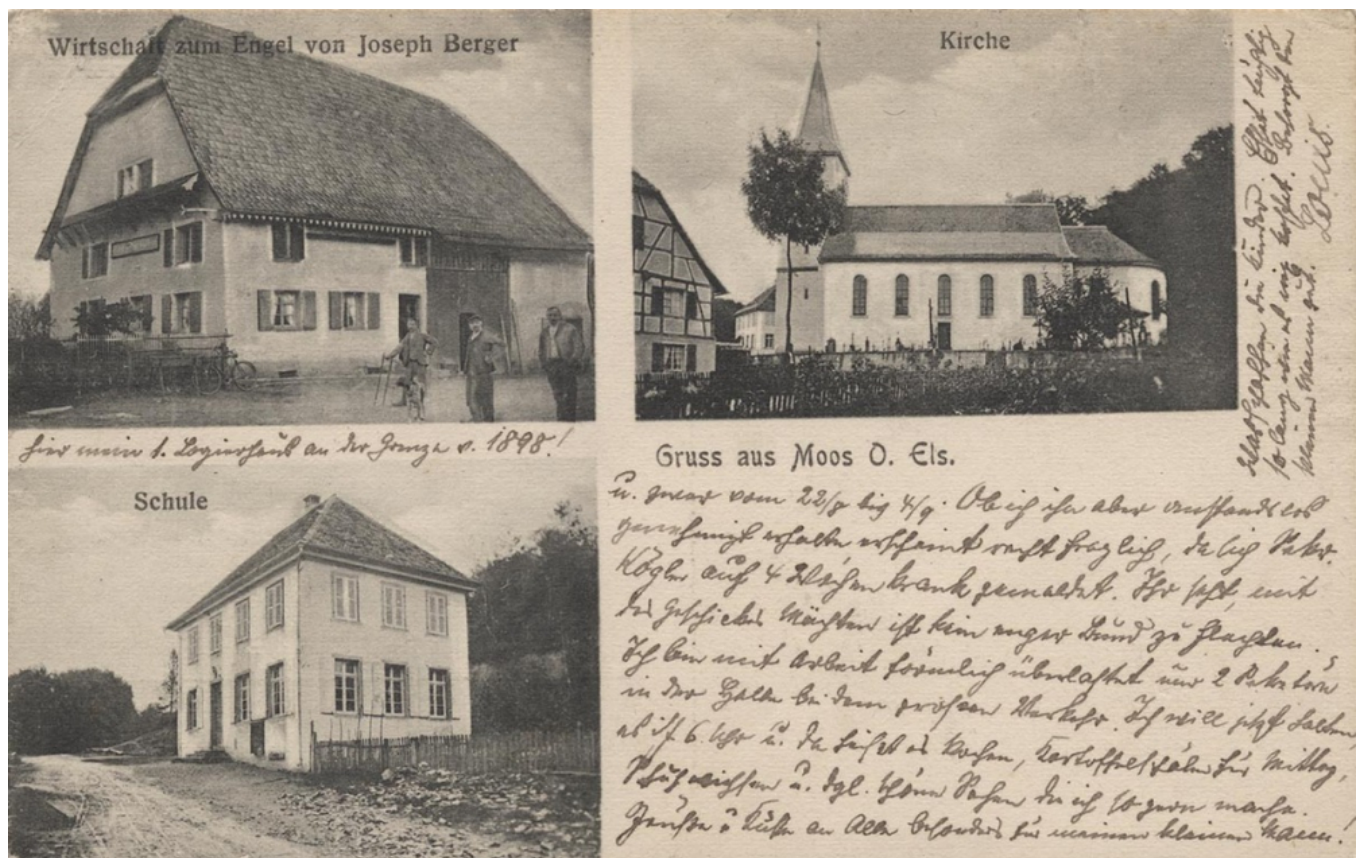 Wirtschaft zum Engel von Joseph Berger
Kirche
hier mein 1. Logierhaus an der Grenze v. 1898!
Schule
Gruss aus Moos O. Els.
u. zwar vom 22/8 bis 4/9. Ob ich ihn aber anstandslos
genehmigt erhalte erscheint recht fraglich, da sich
Kögler auf 4 Wochen krank gemeldet. Ihr seht, mit
des Geschickes Mächten ist kein enger Bund zu flechten.
Ich bin mit Arbeit förmlich überlastet nur 2
in der Halle bei dem grossen Verkehr. Ich will jetzt
es ist 6 Uhr u. da heisst es kochen, Kartoffelschälen für Mittag,
Schuhwichsen u. dgl. schöne Sachen die ich so gern mache.
Grüsse u Küsse an Alle besonders für meinen kleinen Mann!
Was machen die Kinder.
so lang wie es
kleinen Mann gut. Louis.